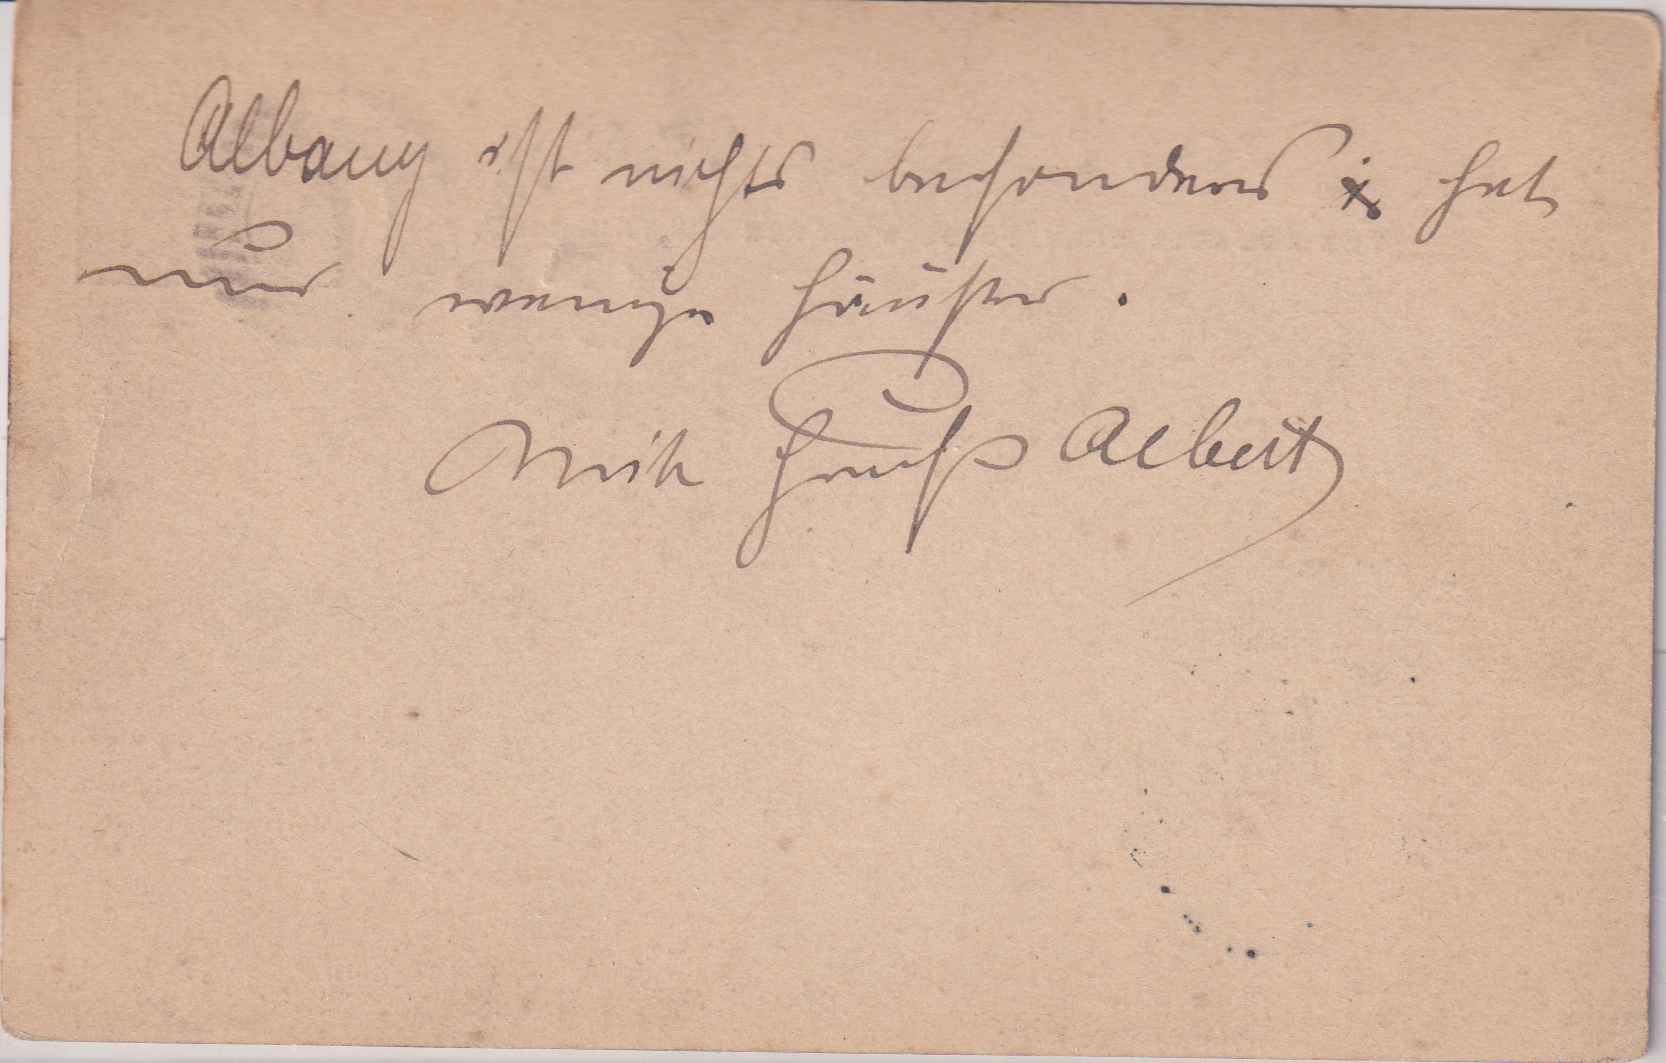 Albany ist nichts besonders & hat
nur wenige Häuser.
Mit Gruß Albert